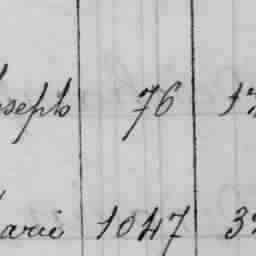 oseph 76 17
arie 1047 32